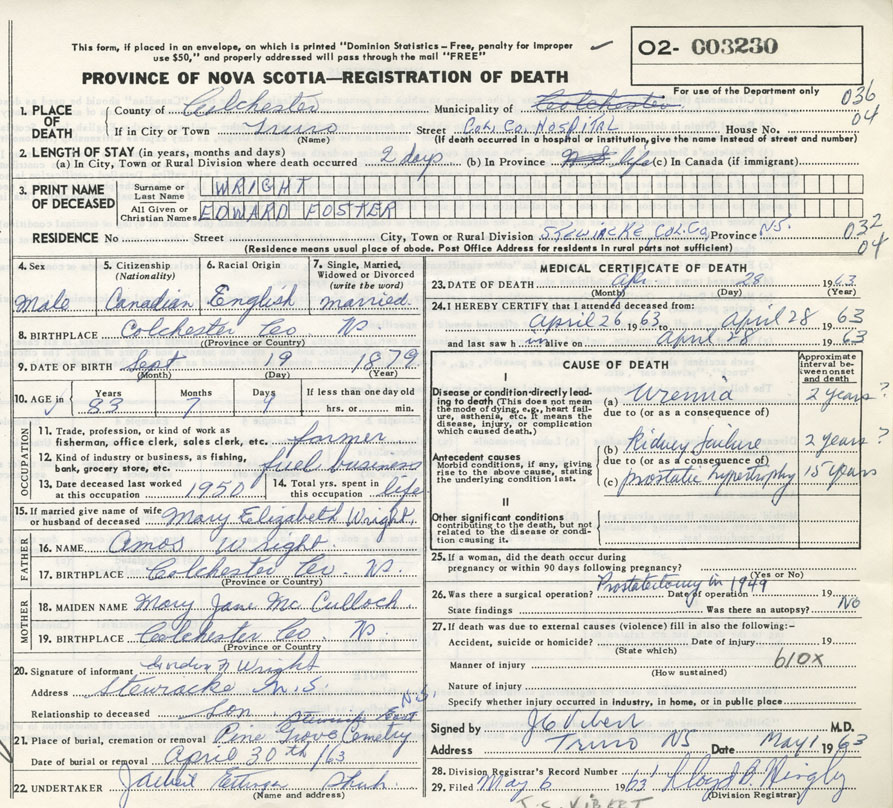 This form, if placed in an envelope, on which is printed "Dominion Statistics – Free, penalty for improper
use $50," and properly addressed will pass through the mail "FREE"
O2- 003230
PROVINCE OF NOVA SCOTIA—REGISTRATION OF DEATH
For use of the Department only
036
04
1. PLACE OF DEATH County of Colchester Municipality of Colchester
If in City or Town Truro Street Col. Co. HOSPITAL House No.
(Name) (If death occurred in a hospital or institution, give name instead of street and number)
2. LENGTH OF STAY (in years, months and days)
(a) In City, Town or Rural Division where death occurred 2 days (b) In Province life (c) In Canada (if immigrant)
3. PRINT NAME OF DECEASED Surname or Last Name WRIGHT
All Given or Christian Names EDWARD FOSTER
RESIDENCE No Street City, Town or Rural Division STEWIACKE, COL. CO. Province N.S.
032
04
(Residence means usual place of abode. Post Office Address for residents in rural parts not sufficient)
4. Sex 5. Citizenship (Nationality) 6. Racial Origin 7. Single, Married, Widowed or Divorced (write the word)
Male Canadian English married.
8. BIRTHPLACE Colchester Co NS
(Province or Country)
9. DATE OF BIRTH Sept 19 1879
(Month) (Day) (Year)
10. AGE in Years Months Days If less than one day old
83 7 9 hrs. or min.
OCCUPATION
11. Trade, profession, or kind of work as fisherman, office clerk, sales clerk, etc. farmer
12. Kind of industry or business, as fishing, bank, grocery store, etc. fuel business
13. Date deceased last worked at this occupation 1950 14. Total yrs. spent in this occupation life
15. If married give name of wife or husband of deceased Mary Elizabeth Wright.
FATHER
16. NAME Amos Wright.
17. BIRTHPLACE Colchester Co. NS.
(Province or Country)
MOTHER
18. MAIDEN NAME Mary Jane McCulloch.
19. BIRTHPLACE Colchester Co. NS
(Province or Country)
20. Signature of informant Wright
Address Stewiacke N.S.
Relationship to deceased son
21. Place of burial, cremation or removal Pine Grove Cemetry
Date of burial or removal April 30th /63
22. UNDERTAKER
(Name and address)
MEDICAL CERTIFICATE OF DEATH
23. DATE OF DEATH Apr. 28 1963
(Month) (Day) (Year)
24. I HEREBY CERTIFY that I attended deceased from:
April 26 1963 to April 28 1963
and last saw him alive on April 28 1963
CAUSE OF DEATH
Approximate interval between onset and death
I
Disease or condition directly leading to death (This does not mean the mode of dying, e.g., heart failure, asthenia, etc. It means the disease, injury, or complication which caused death.)
(a) Uremia 2 years?
due to (or as a consequence of)
(b) Kidney failure 2 years?
due to (or as a consequence of)
Antecedent causes
Morbid conditions, if any, giving rise to the above cause, stating the underlying condition last.
(c) prostatic hypertrophy 15 years
II
Other significant conditions
contributing to the death, but not related to the disease or condition causing it.
25. If a woman, did the death occur during pregnancy or within 90 days following pregnancy?
(Yes or No)
26. Was there a surgical operation? Prostatectomy in 1949 Date of operation 19
State findings Was there an autopsy? No
27. If death was due to external causes (violence) fill in also the following:–
Accident, suicide or homicide? Date of injury 19
(State which)
610X
Manner of injury
(How sustained)
Nature of injury
Specify whether injury occurred in industry, in home, or in public place
Signed by J C Vibert M.D.
Address Truro NS Date May 1 1963
28. Division Registrar's Record Number
29. Filed May 6 1963
(Division Registrar)
J. C. VIBERT